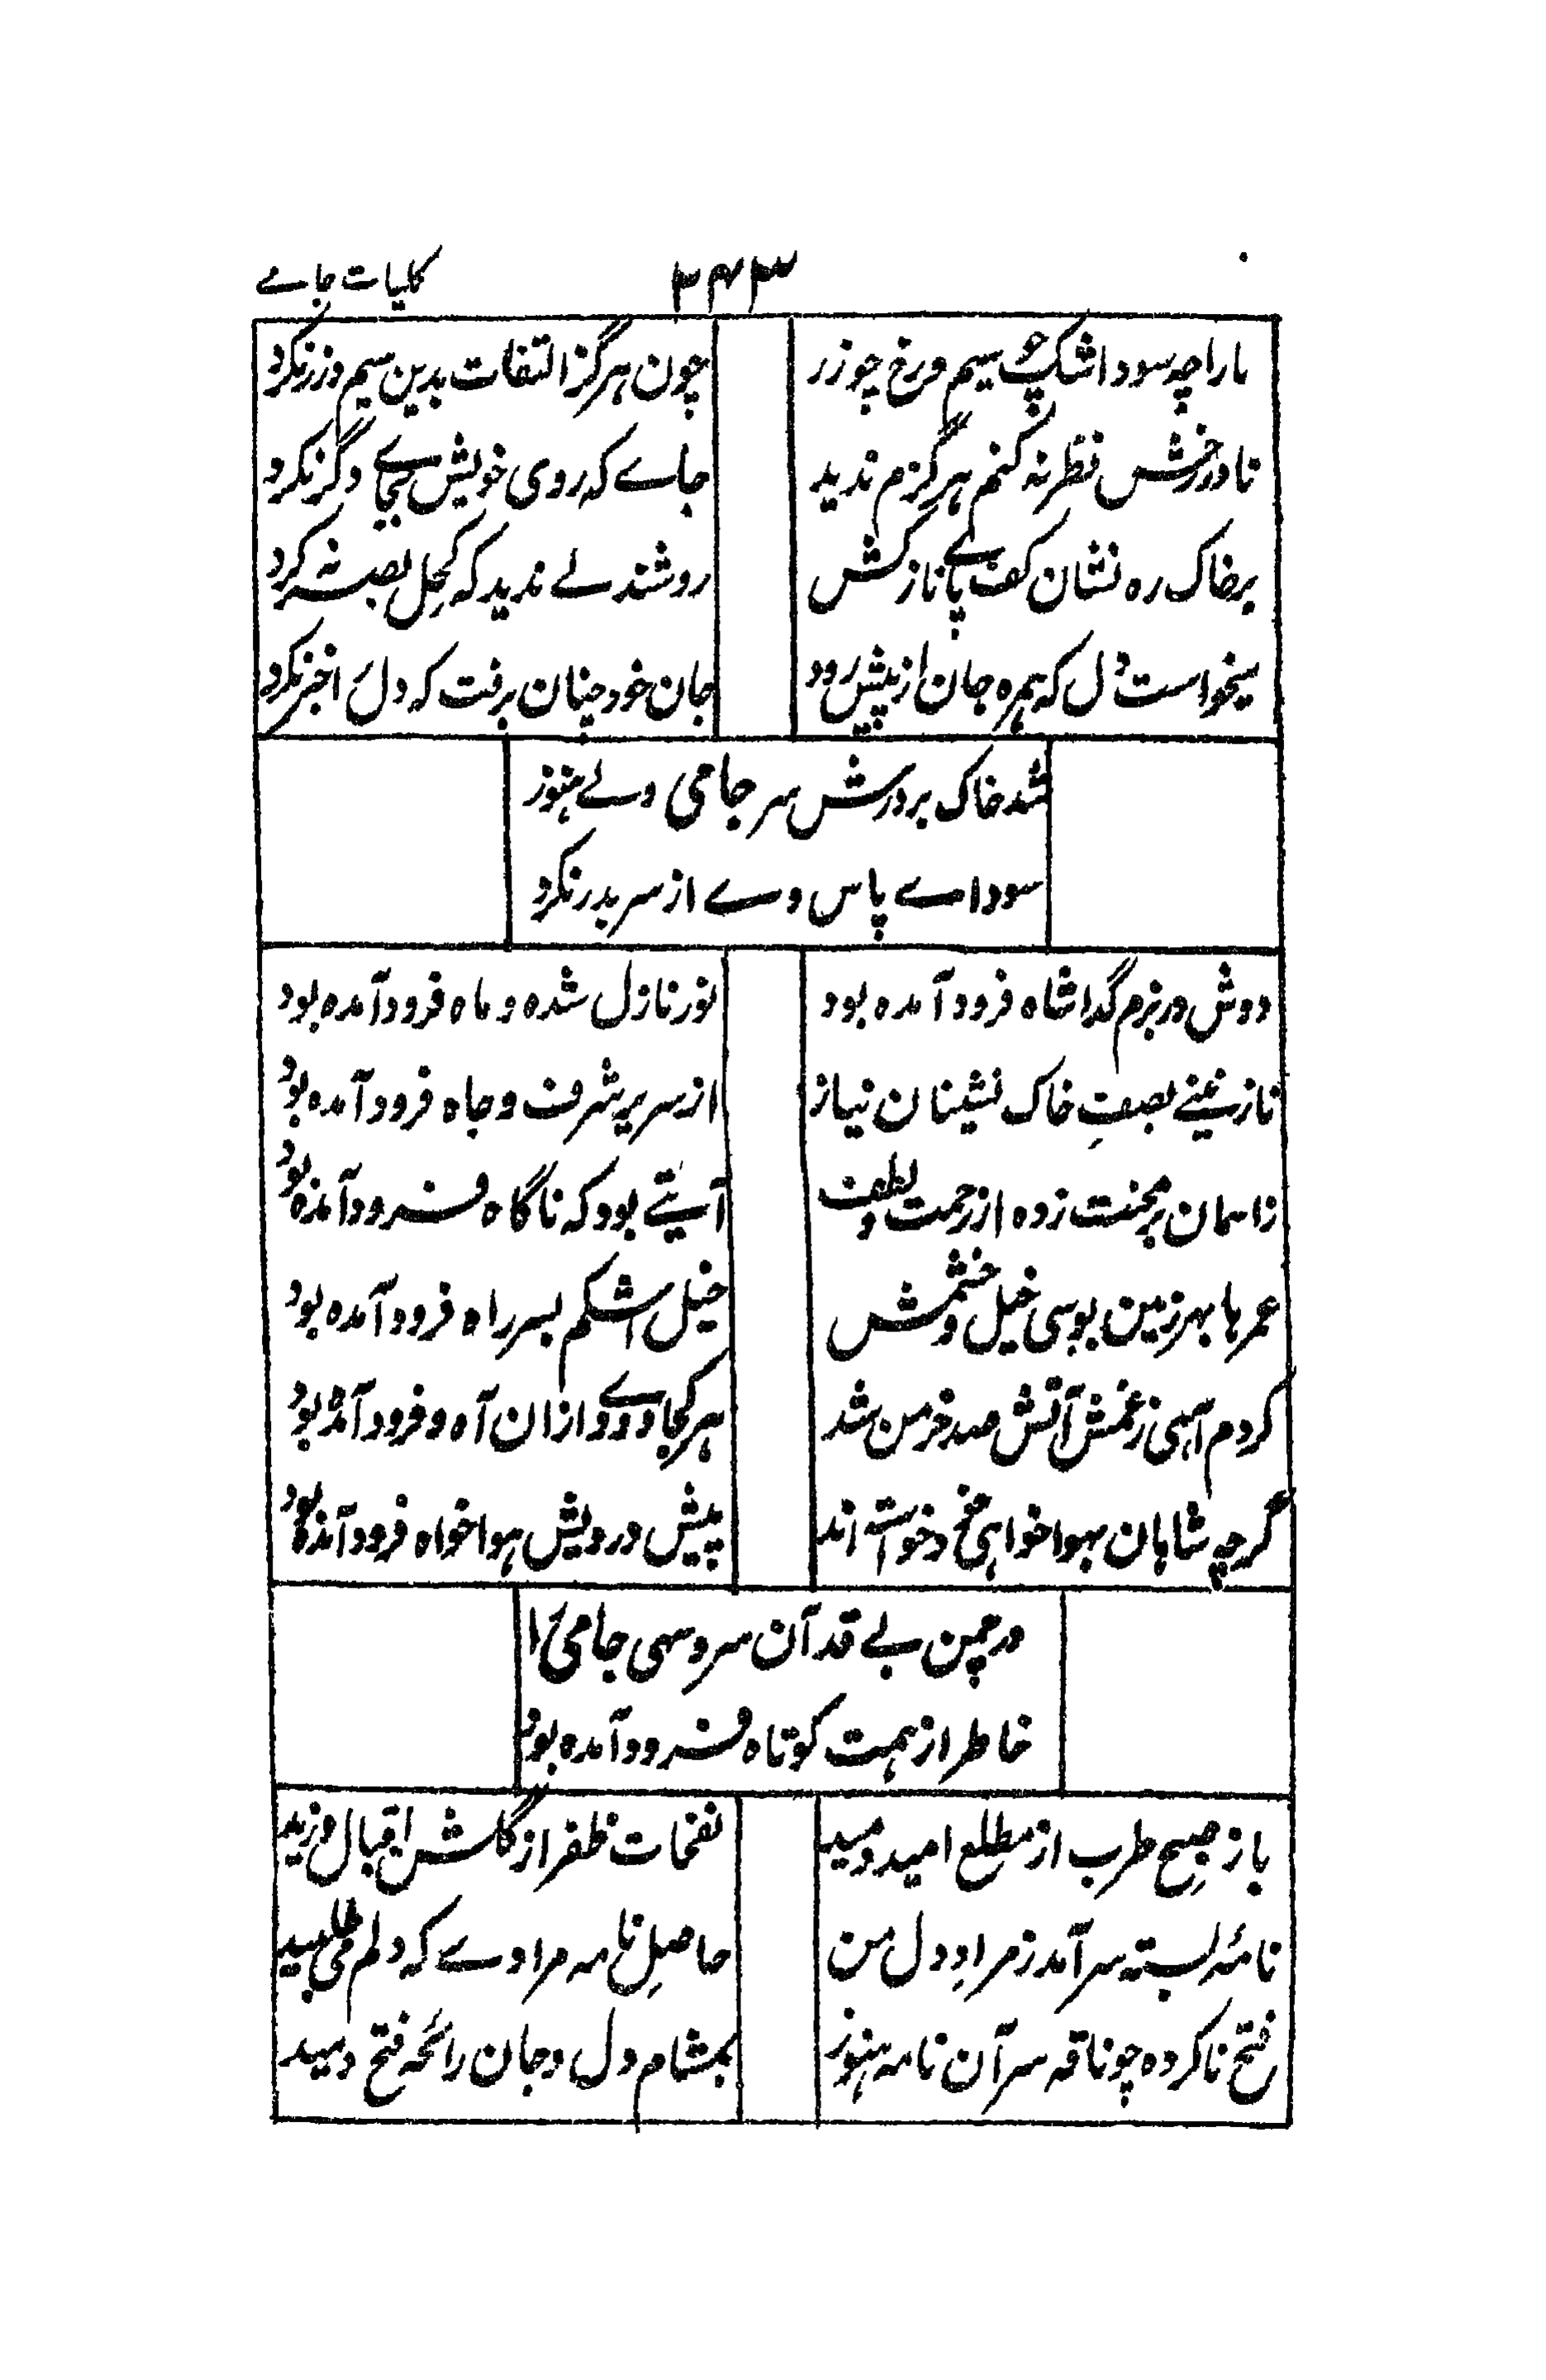 کلیات جامے
۳۴۳
ما را چہ سود اشک چو سیم و رخ چو زر
چون ہرگز التفات بدین سیم و زر نکرد
تا در رخش نظر نہ کنم ہرگزم ندید
جاے کہ روی خویش بجاے دگر نکرد
بر خاک رہ نشان کف پاے نازکش
روشندلے ندید کہ کحل بصر نہ کرد
میخواست دل کہ ہمرہ جان از پیش رود
جان خود چنان برفت کہ دل را خبر نکرد
شد خاک بر درش سر جامی ولے ہنوز
سوداے پاس وے از سر بدر نکرد
دوش در بزم گدا شاہ فرود آمدہ بود
نور نازل شدہ و ماہ فرود آمدہ بود
نازنینے بصفِ خاک نشینان نیاز
از سریر شرف و جاہ فرود آمدہ بود
ز اسمان بر محنت زدہ از رحمت و لطف
آیتے بود کہ ناگاہ فرود آمدہ بود
عمرہا بہر زمین بوسی خیل و حشمش
خیل اشکم بسر راہ فرود آمدہ بود
کردم آہی ز غمش آتش صد خرمن شد
ہر کجا دودے ازان آہ فرود آمدہ بود
گرچہ شاہان بہوا خواہی خود خواستہ اند
پیش درویش ہوا خواہ فرود آمدہ بود
در چمن بے قد آن سرو سہی جامی را
خاطر از ہمت کوتاہ فرود آمدہ بود
باز صبح طرب از مطلع امید دمید
نفحات ظفر از گلشن اقبال وزید
نامۂ بستہ سر آمد ز مرادِ دل من
حاصلِ نامہ مرادے کہ دلم می طلبید
فتح ناکردہ چو نافہ سر آن نامہ ہنوز
بمشام دل و جان رائحہ فتح دمید